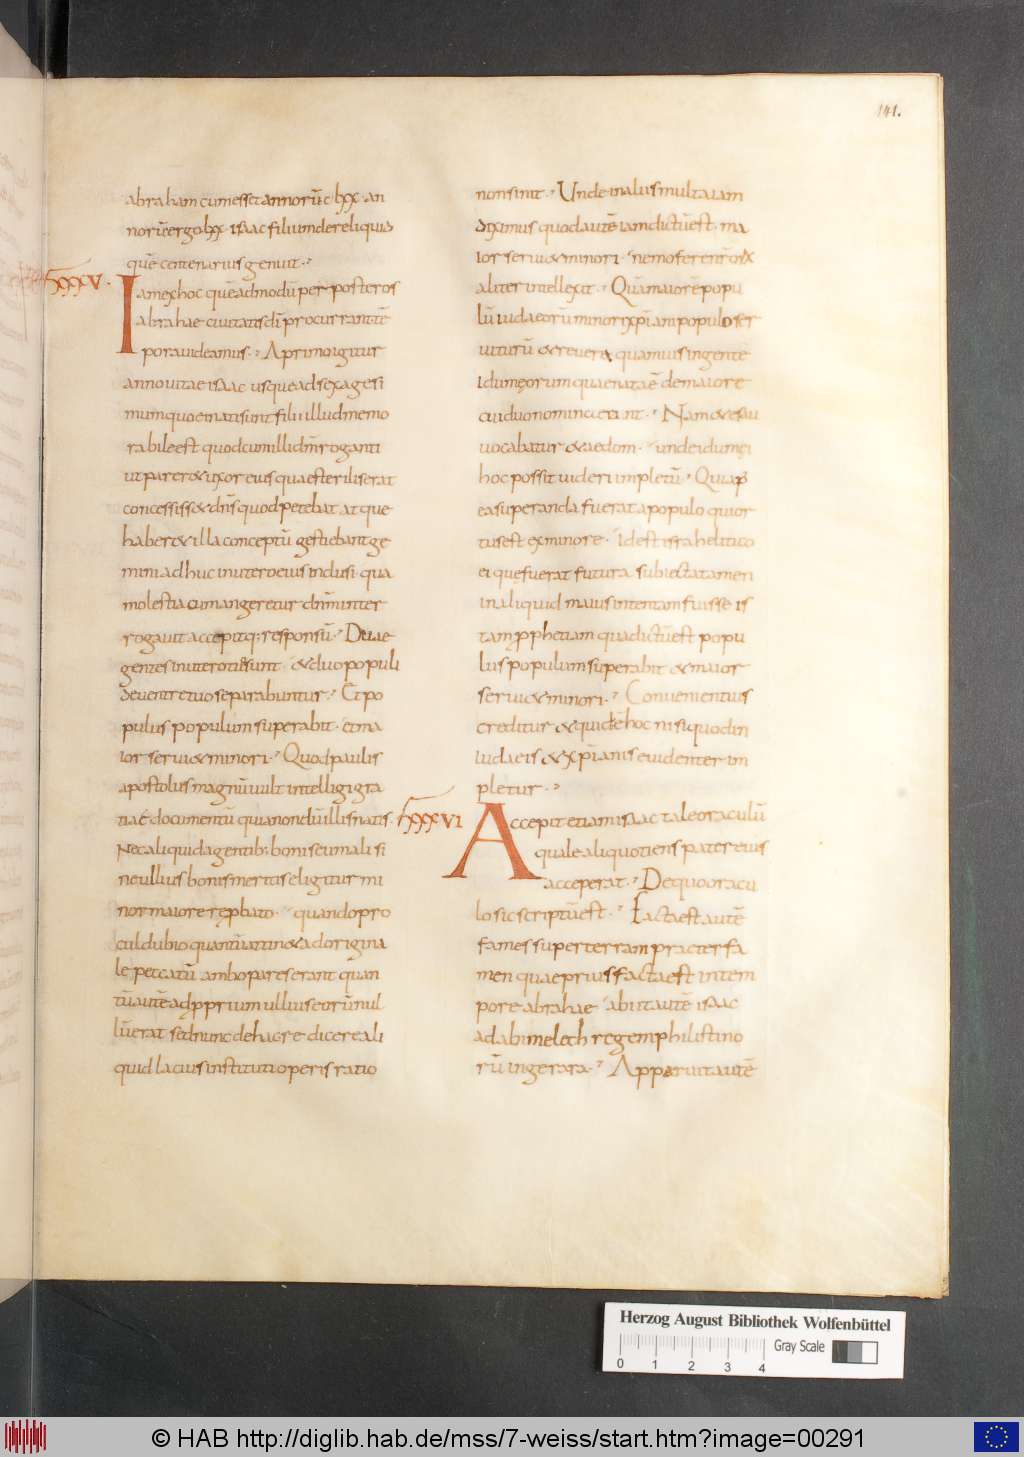 141.
abraham cum esset annorū c lxxx · an
norū ergo lxx · isaac filii inde reliquia
quē centenarius genuit ·
lxxxv ·
Iam ex hoc quēadmodū per posteros
abrahae ciuitatis dī procurrant tē
pora uideamus · A primo igitur
anno uitae isaac usque ad sexagesi
mum quo ei nati sunt filii illud memo
rabile est quod cum illi dm̄ roganti
ut pareret uxor eius quae sterilis erat
concessisset dn̄s quod petebat atque
haberet illa conceptū gestiebant ge
mini adhuc in utero eius inclusi qua
molestia cum angeretur dn̄m inter
rogauit accepitq; responsū · Duae
gentes in utero tuo sunt · et duo populi
de uentre tuo separabuntur · Et po
pulus populum superabit · et ma
ior seruiet minori · Quod paulus
apostolus magnū uult intelligi gra
tiae documentū quia nondū illis natis
Nec aliquid agentib; boni seu mali si
ne ullius bonis meritis eligitur mi
nor maiore reprobato · quando pro
cul dubio quantū attinet ad origina
le peccatū ambo pares erant quan
tū autē ad proprium ullius eorū nul
lū erat sed nunc de hac re dicere ali
quid lacius instituti operis ratio
non sinit · Unde in aliis multa iam
diximus quod autē iam dictū est · ma
ior seruiet minori · nemo fere nr̄orū
aliter intellexit · Quā maiorē popu
lū iudaeorū minori xp̄iam populo ser
uiturū et reuera quamuis in gente
idumeorum quae nata ē de maiore
cui duo nomina erant · Nam et esau
uocabatur et aedom · unde idumei
hoc possit uideri impletū · Quia p̄
ea superanda fuerat a populo qui or
tus est ex minore · id est israhelitico
ei que fuerat futura subiecta tamen
in aliquid maius intentam fuisse is
tam prophetiam qua dictū est popu
lus populum superabit et maior
seruiet minori · Conuenientius
creditur et quid ē hoc nisi quod in
iudaeis et xp̄ianis euidenter im
pletur ·
lxxxvi
Accepit etiam isaac tale oraculū
quale aliquotiens pater eius
acceperat · De quo oracu
lo sic scriptū est · Facta est autē
fames super terram praeter fa
men quae prius facta est in tem
pore abrahae · abiit autē isaac
ad abimelech regem philistino
rū in gerara · Apparuit autē
Herzog August Bibliothek Wolfenbüttel
Gray Scale
0 1 2 3 4
© HAB http://diglib.hab.de/mss/7-weiss/start.htm?image=00291